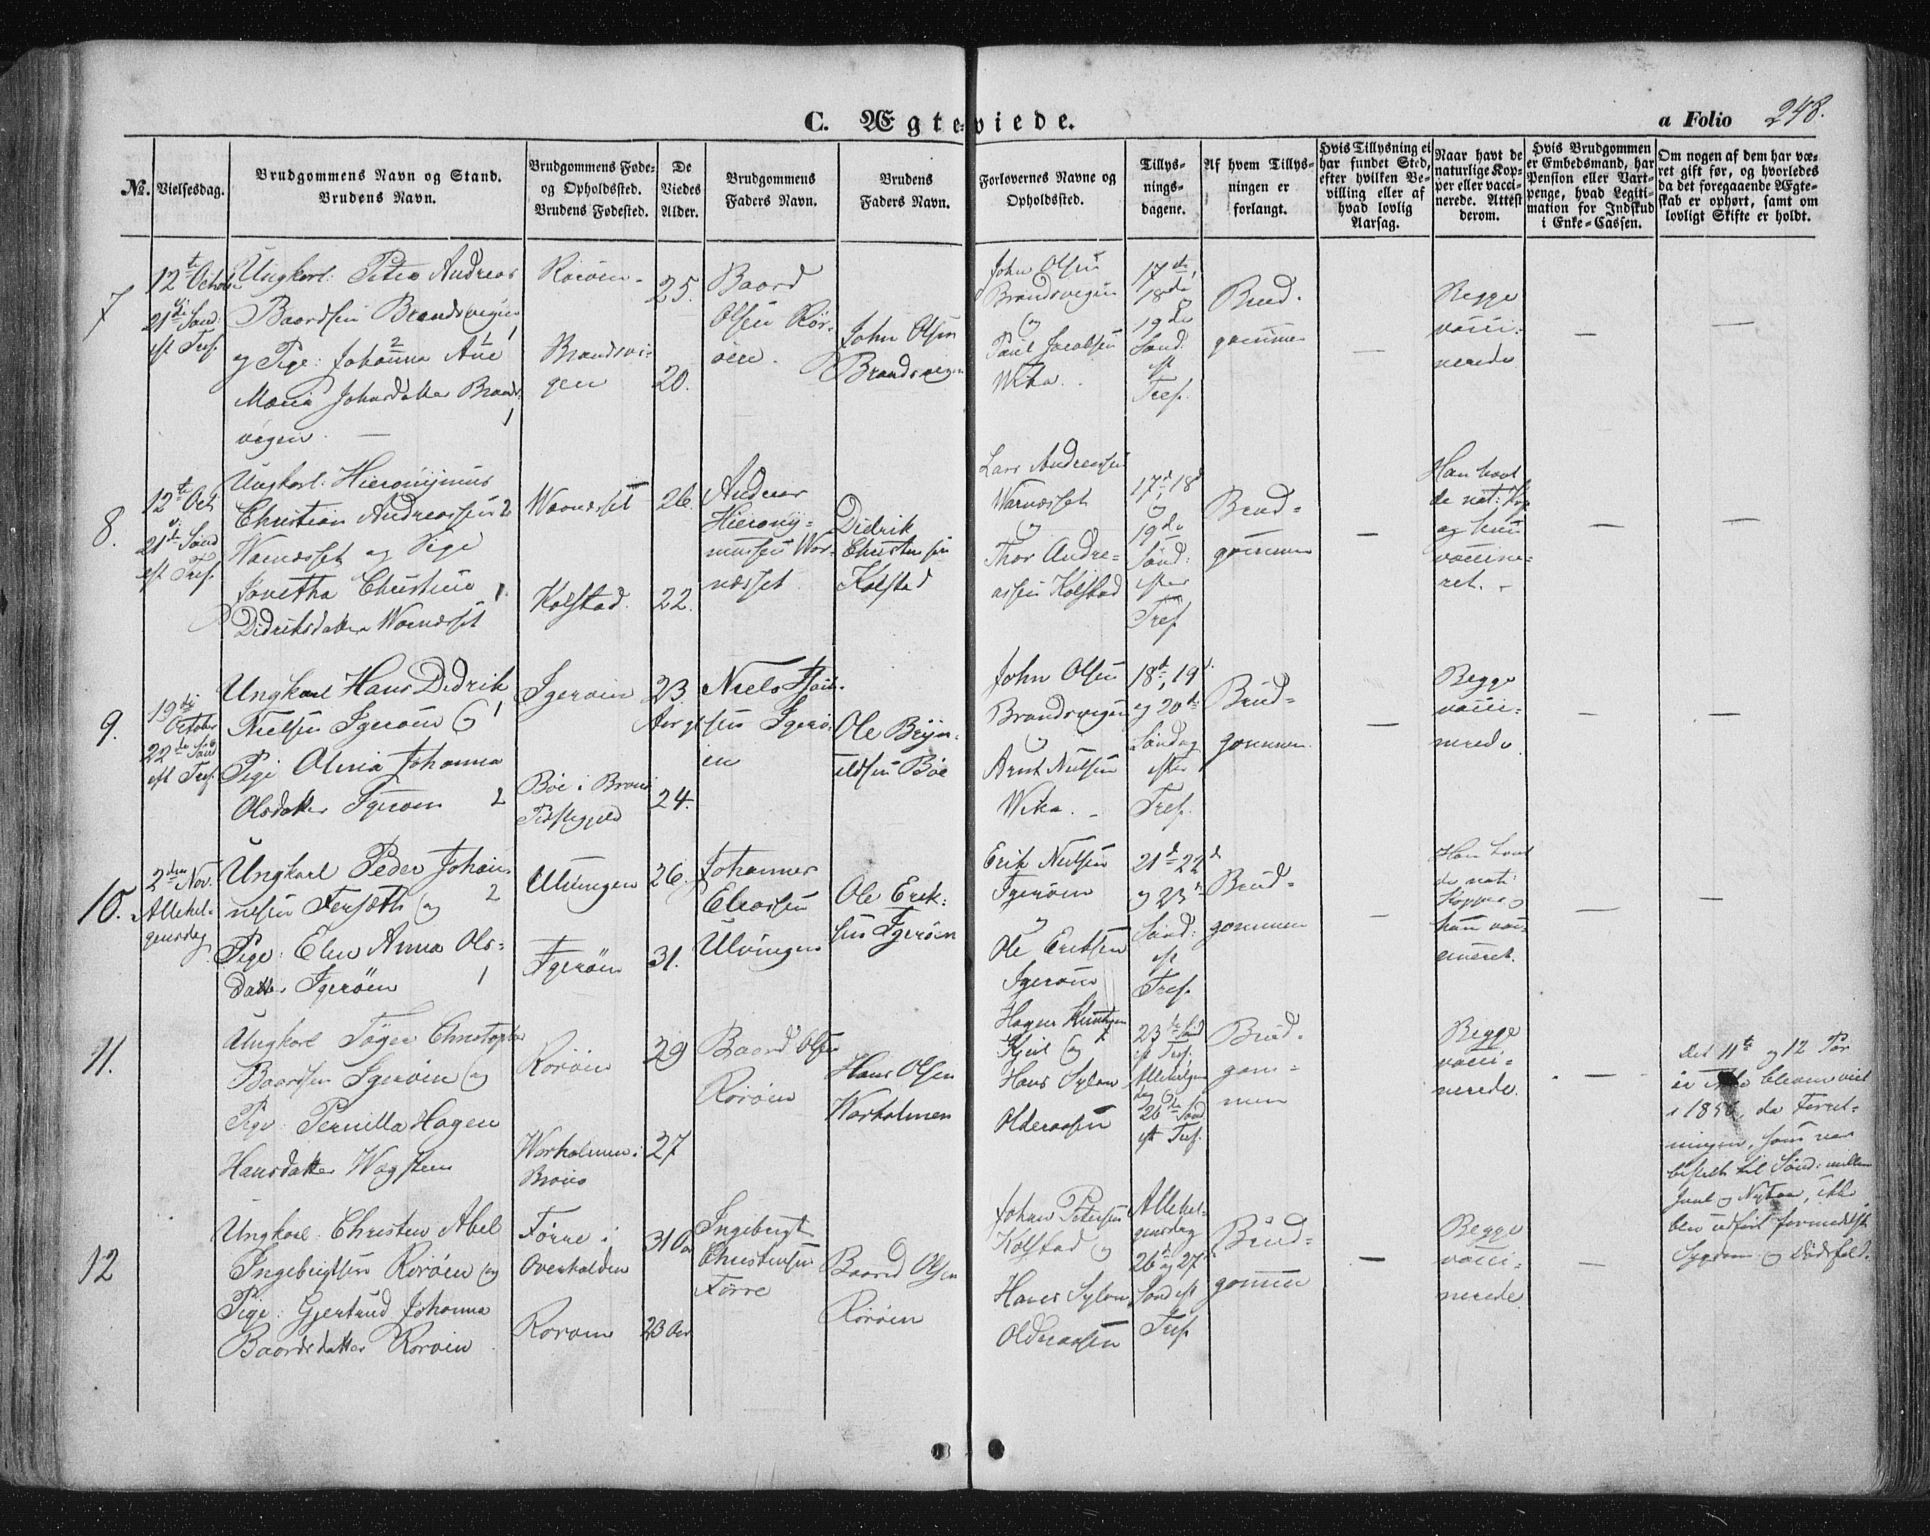 C. Ægteviede.
a Folio 248.
No.
Vielsesdag.
Brudgommens Navn og Stand.
Brudens Navn.
Brudgommens Føde-
og Opholdssted.
Brudens Fødested.
De
Viedes
Alder.
Brudgommens
Faders Navn.
Brudens
Faders Navn.
Forlovernes Navne og
Opholdssted.
Tillys-
nings-
dagene.
Af hvem Tillys-
ningen er
forlangt.
Hvis Tillysning ei
har fundet Sted,
efter hvilken Be-
villing eller af
hvad lovlig
Aarsag.
Naar havt de
naturlige Kop-
per eller vacci-
nerede. Attest
derom.
Hvis Brudgommen
er Embedsmand, har
Pension eller Vart-
penge, hvad Legiti-
mation for Indskud
i Enke-Cassen.
Om nogen af dem har væ-
ret gift før, og hvorledes
da det foregaaende Ægte-
skab er ophørt, samt om
lovligt Skifte er holdt.
7
12te October
21de Sønd:
eft Tref.
Ungkarl: Peter Andreas
Baardsen Brandsvigen 1
og Pige: Johanna Ane
Maria Johnsdatter Brands-
vigen. —
Rørøen
Brandsvi-
gen
25.
20.
Baard
Olsen Rør-
øen.
John Olsen
Brandsvigen
John Olsen
Brandsvigen
og
Paul Jacobsen
Wika.
17de,
18de
&
19de
Sønd:
eft
Tref.
Brud-
gommen
—
Begge
vacci-
nerede
—
—
8.
12te Oct
21de Sønd
eft Tref.
Ungkarl: Hieronymus
Christian Andreassen 2
Wærnæsset og Pige
Christine 1.
Didriksdatter Wærnæsset
Wærnæsset
Kolstad.
26.
22.
Andreas
Hierony-
mussen Wær-
næsset.
Didrik
Christensen
Kolstad
Lars Andreassen
Wærnæsset
og
Thor Andre-
assen Kolstad
17d, 18d
og
19de
Sønd:
efter
Tref.
Brud-
gommen
—
Han havt
de nat: Kop
og hun
vaccine-
ret.
—
—
9.
19de
October
22de Sønd
eft Tref.
Ungkarl Hans Didrik
Nielsen Igerøen & 1
Pige Olina Johanna
Olsdatter Igerøen 2
Igerøen
Bøe i Brønø
Præstegjeld
23
Aar
24.
Niels
Igerø-
en
Ole Bryn-
ildsen Bøe
John Olsen
Brandsvigen
og
Arnt Nielsen
Wika.
18d, 19d
og 20de
Søndag
efter
Tref.
Brud-
gommen
—
Begge
vacci-
nerede
—
—
10.
2den Nov.
Allehel-
gensdag
Ungkarl Peder Johan-
nesen Forsæth og 2
Pige: Elen Anna Ols-
datter Igerøen 1
Ulvingen
Igerøen
26.
31.
Johannes
Eliassen
Ulvingen
Ole Erik-
sen Igerøen
Erik Nielsen
Igerøen
og
Ole Eriksen
Igerøen
21d 22d
og 23d
Sønd:
eft
Tref.
Brud-
gommen
—
Han havt
de nat:
Kopper og
hun vac-
cineret.
—
—
11.
Ungkarl Tøger Christopher
Baardsen Igerøen og
Pige: Pernilla Hagen
Hansdatter Wagsteen
Rørøen
Warholmen i
Brønø
29
27
Baard Olsen
Rørøen
Hans Olsen
Warholmen
Hagen
og
Hans Sylen
Olderaasen
23de Sønd
eft Tref;
Allehelgens
dag &
26de Sønd
eft Tref.
Brud-
gom-
men
Begge
vacci-
nerede.
—
Det 11te og 12 Par
er ikke bleven viet
i 1856, da Forret-
ningen, som var
bestilt til Sønd: mellem
Juul og Nytaar, ikke
blev udført formedelst
Sygdom og Dødsfald.
12
Ungkarl: Christen Abel
Ingebrigtsen Rørøen og
Pige: Gjertrud Johanna
Baardsdatter Rørøen
Førre i
Overhalden
Rørøen
31 Aar
23 Aar
Ingebrigt
Christensen
Førre
Baard Olsen
Rørøen
Johan Petersen
Kolstad og
Hans Sylen
Olderaasen
Allehel-
gensdag
26d og 27d
Sønd eft
Tref.
Brud-
gommen
—
Begge
vacci-
nerede.
—